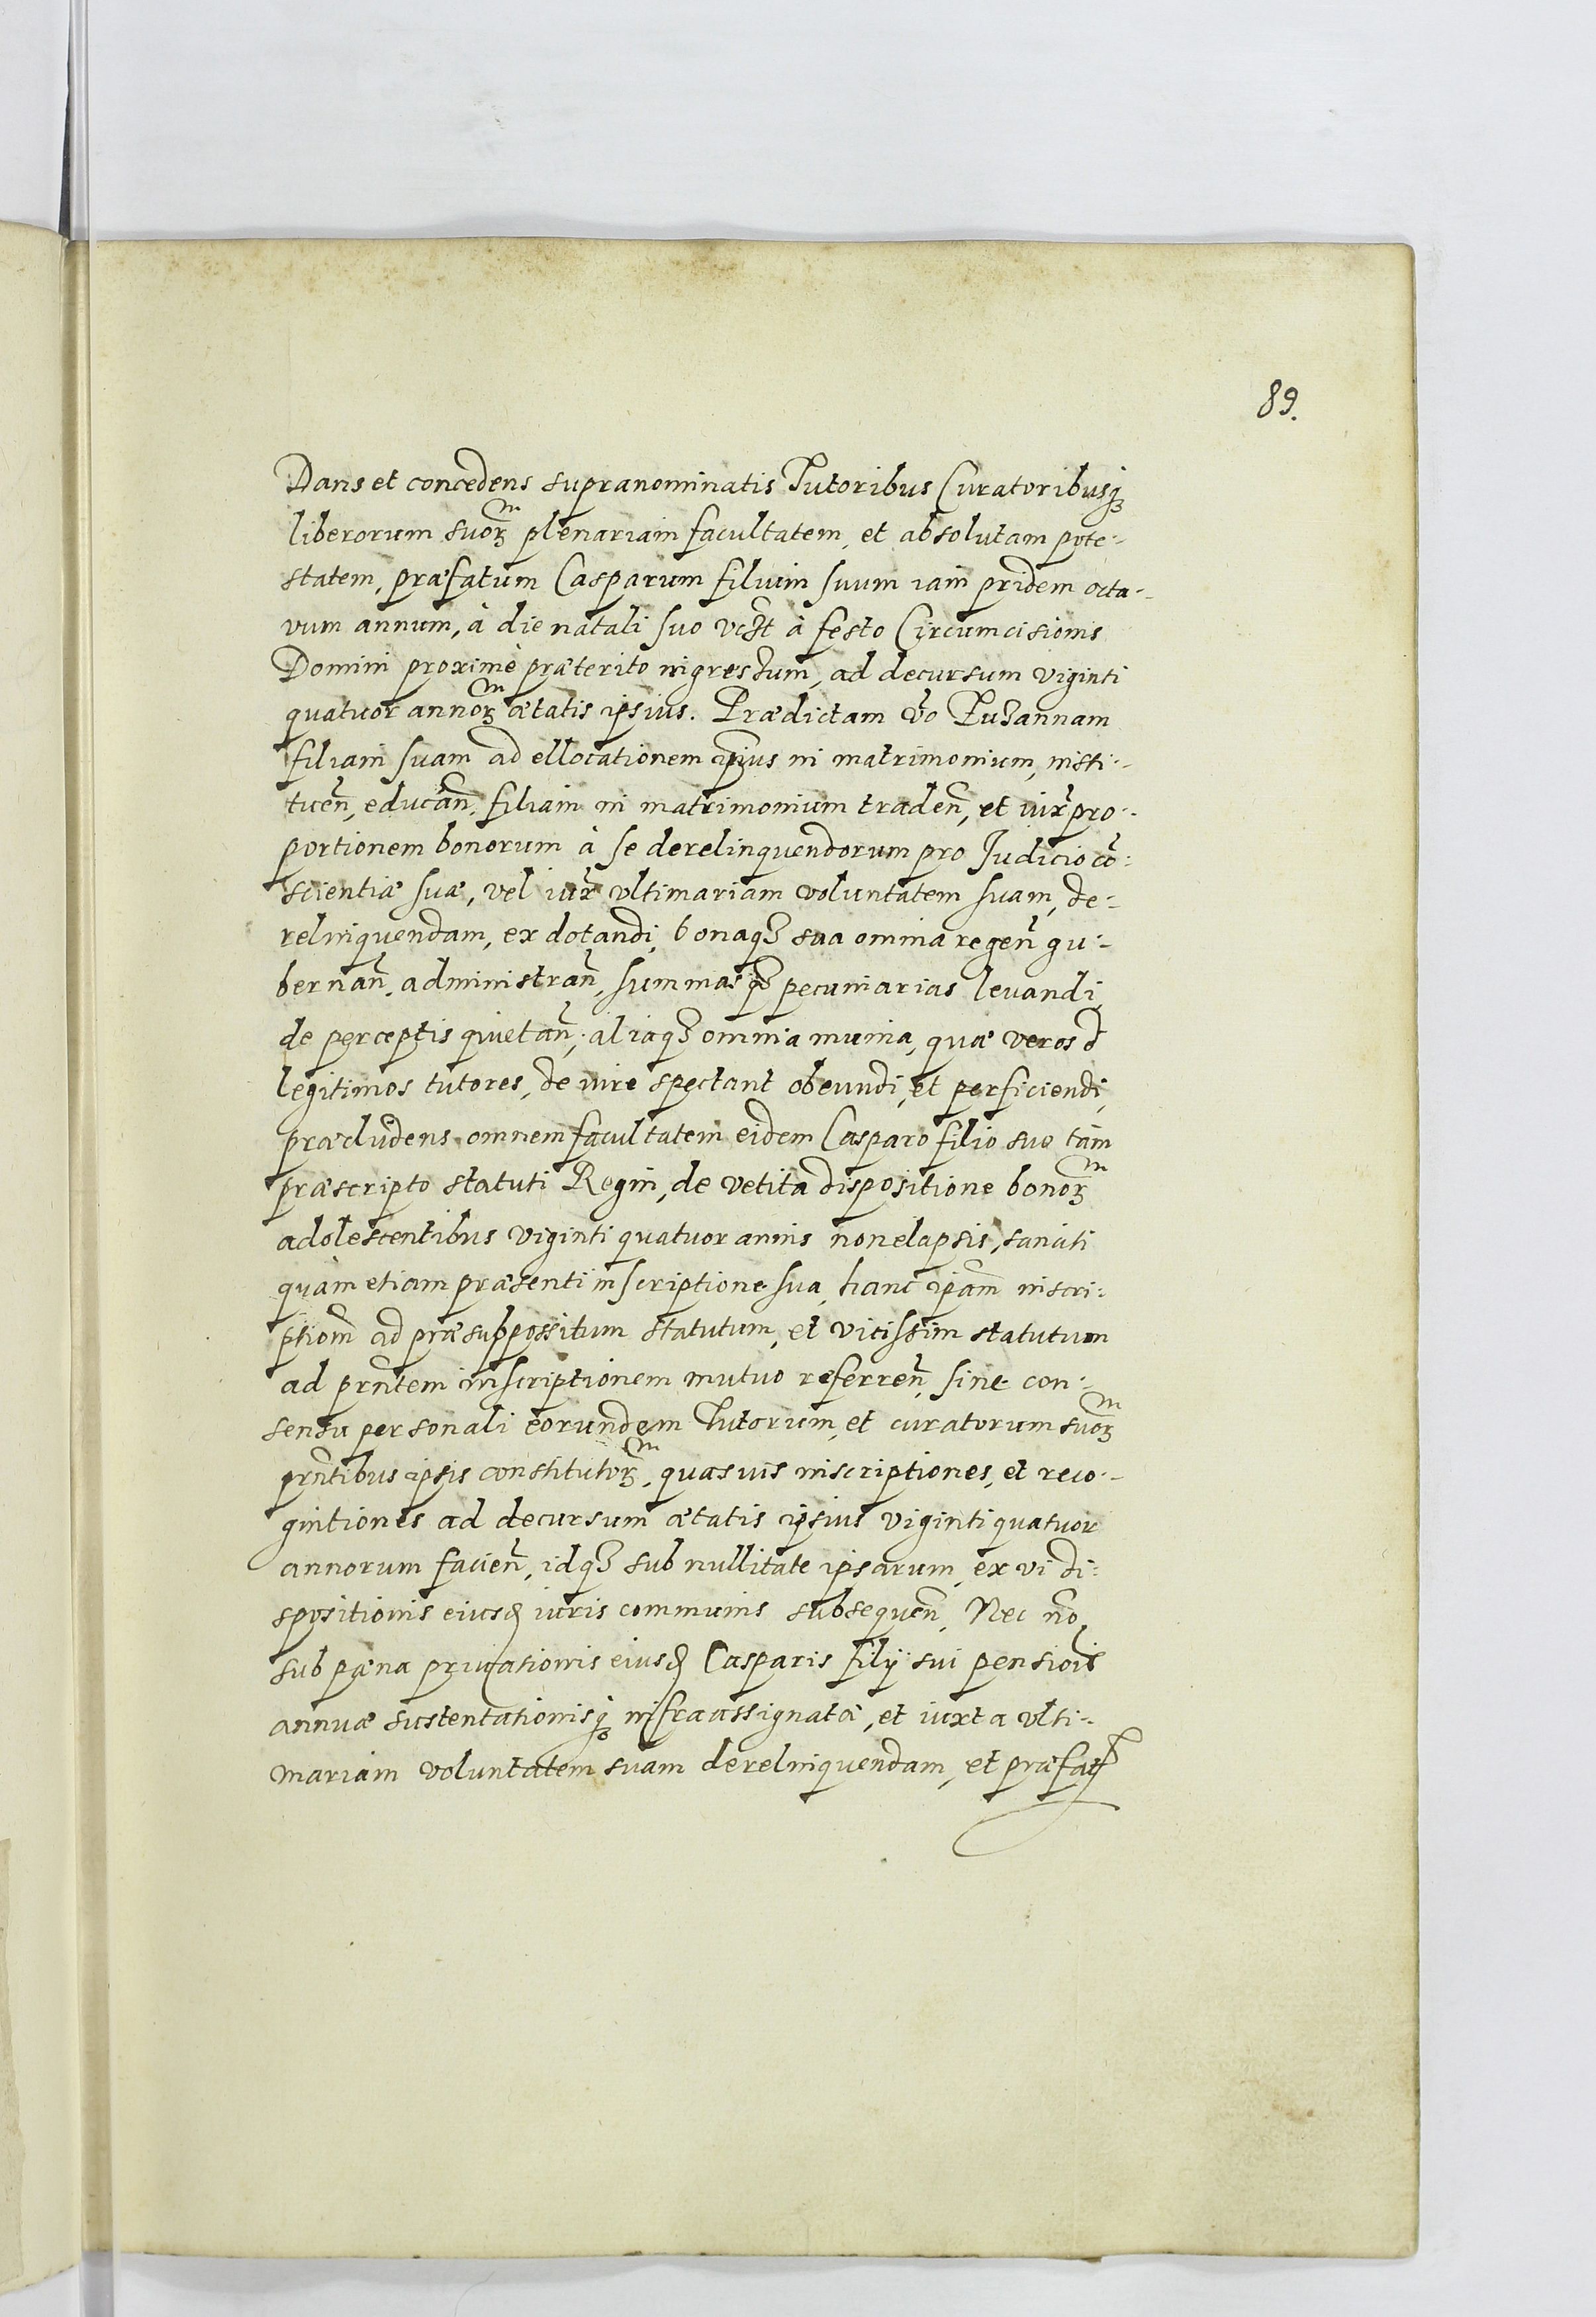 89.
Dans et concedens supranominatis Tutoribus Curatoribusq₃
liberorum suorꝫ plenariam facultatem, et absolutam pote-
statem, præfatum Casparum filium suum iam pridem octa-
vum annum, à die natali suo à festo Circumcisionis
Domini proximè præterito ingressum, ad decursum viginti
quatuor annorꝫ ætatis ipsius. Prædictam vo Zuzannam
filiam suam ad ellocationem ipius in matrimonium, insti-
tuen, educan, filiam in matrimonium traden, et iux pro-
portionem bonorum à se derelinquendorum pro Judicio cō:
scientiæ suæ, vel iux vltimariam voluntatem suam, de-
relinquendam, exdotandi, bonaqꝫ sua omnia regen gu-
bernan, administran, summasqꝫ pecuniarias levandi,
de perceptis quietan, aliaqꝫ omnia munia, quæ veros &
legitimos tutores, de iure spectant obeundi, et perficiendi,
præcludens omnem facultatem eidem Casparo filio suo tàm
præscripto statuti Regni, de vetita dispositione bonorꝫ
adolescentibus viginti quatuor annis non elapsis, sanciti
quàm etiam præsenti inscriptione sua, hanc ipam inscri:
ptiom ad præsuppossitum statutum, et vicissim statutum
ad prntem inscriptionem mutuo referren, sine con-
sensu personali eorundem Tutorum, et curatorum suorꝫ
prntibus ipsis constitutorꝫ, quasuis inscriptiones, et reco-
gnitiones ad decursum ætatis ipsius viginti quatuor
annorum facien, idqꝫ sub nullitate ipsarum, ex vi di:
spositionis eiusd iuris communis subsequen, Nec no,
sub pæna priuationis eiusd Casparis filij sui pensiois
annuæ sustentationisq₃ infra assignatæ, et iuxta vlti-
mariam voluntatem suam derelinquendam, et præfat